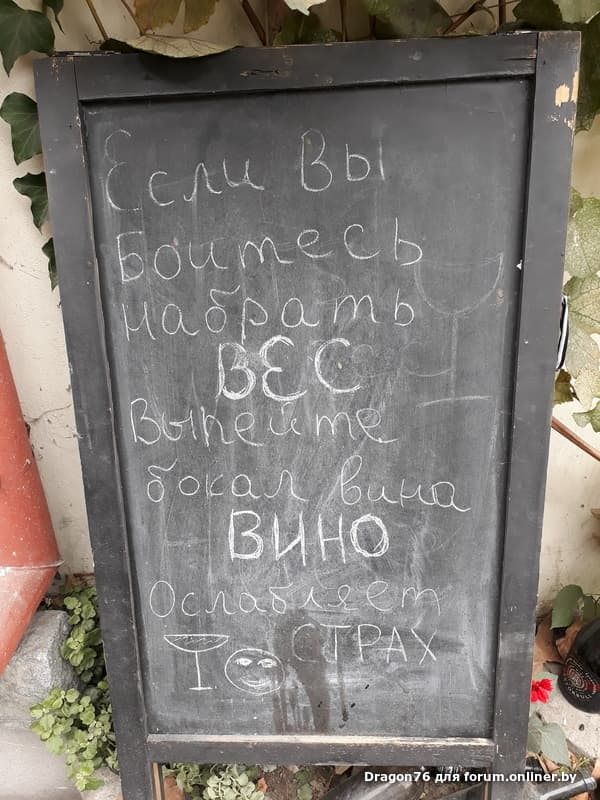 Если Вы
Боитесь
набрать
ВЕС
Выпейте
бокал вина
ВИНО
Ослабляет
СТРАХ
Dragon76 для forum.onliner.by